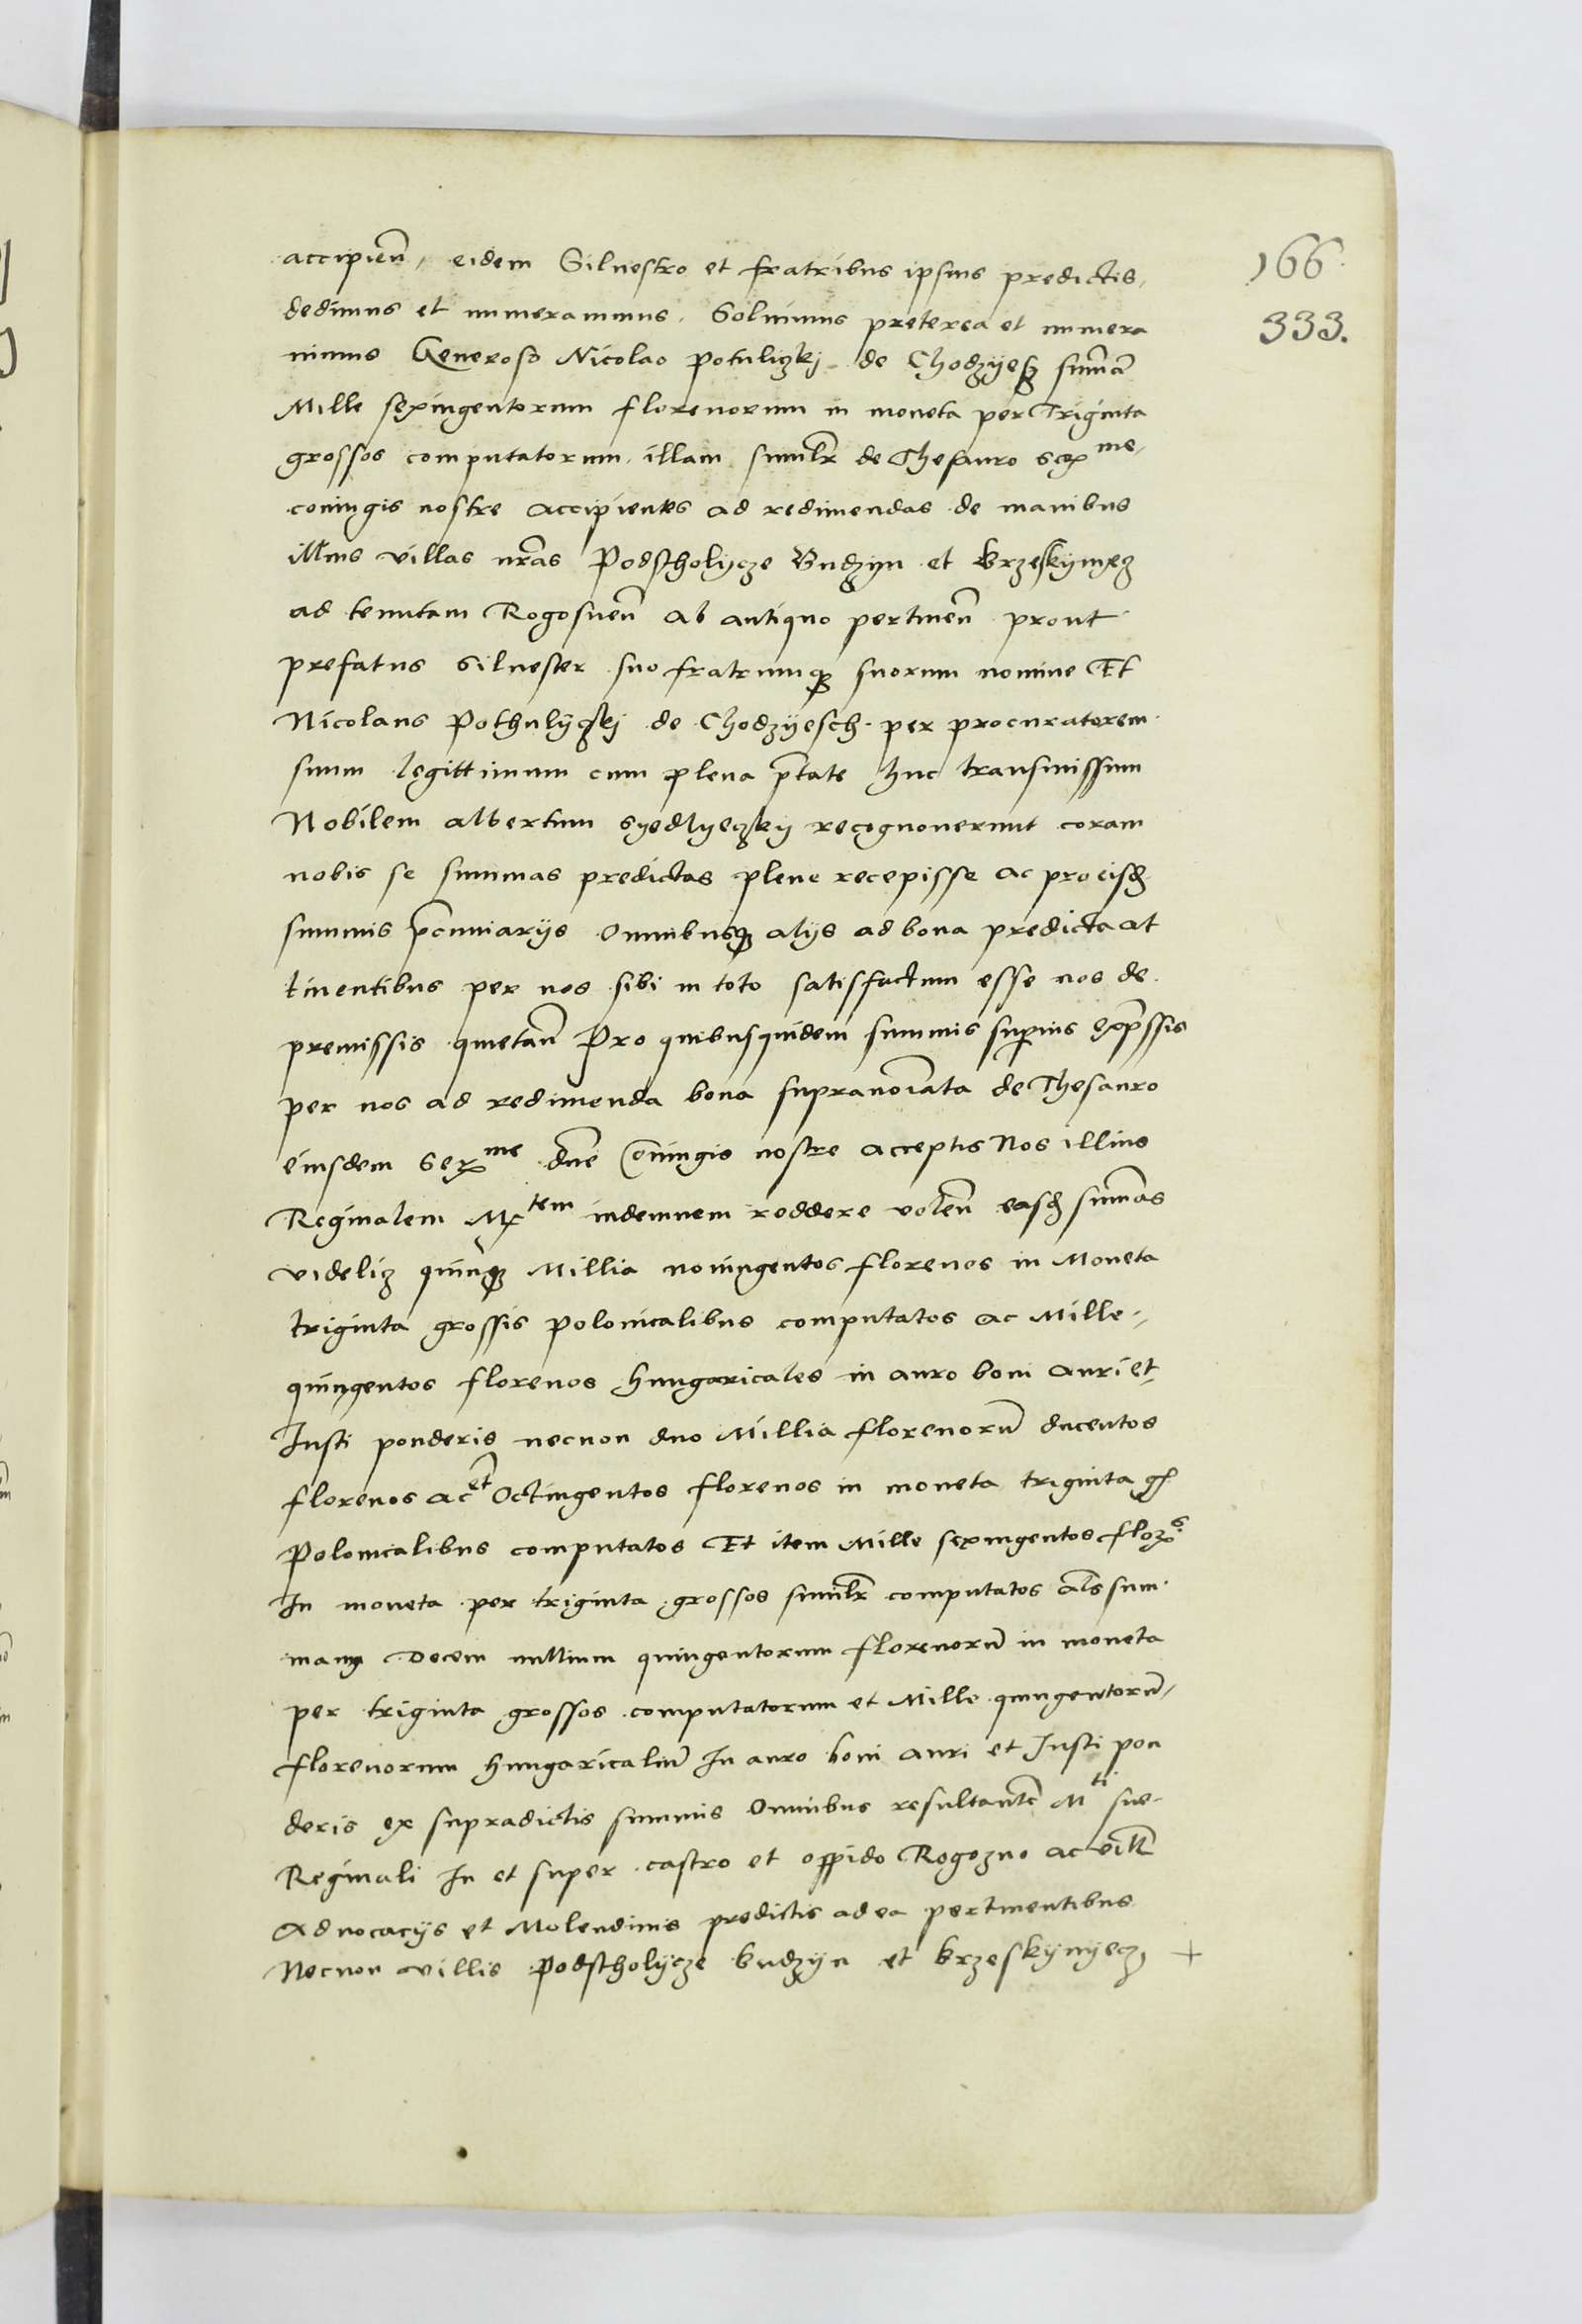 accipien̄, eidem Siluestro et fratribus ipsius predictis,
166
dedimus et numerauimus. Soluimus preterea et numera
333.
uimus Generoso Nicolao Potuliczkj de Chodzyesz sum̄a
Mille sexingentorum florenorum in moneta per Triginta
grossos computatorum illam similr de Thesauro me
coniugis nostre accipientes ad redimendas de manibus
illius villas nr̄as Podstholycze Budzyn et Brzeskynyecz
ad tenutam Rogosnen̄ ab antiquo pertinen̄ prout
prefatus Siluester suo fratrumq3 suorum nomine Et
Nicolaus Pothulyczkj de Chodzyesch per procuratorem
suum legittimum cum plena ptāte huc transmissum
Nobilem Albertum Syedlyeczky recognouerunt coram
nobis se summas predictas plene recepisse ac pro eisd
summis pecuniarijs omnibusq3 alijs ad bona predicta at
tinentibus per nos sibi in toto satisfactum esse nos de
premissis quietan̄ Pro quibusquidem summis superius expressis
per nos ad redimenda bona supranoīata de Thesauro
eiusdem Ser me dn̄e coniugis nostre acceptis Nos illius
Reginalem M tem indemnem reddere volen̄ easd sum̄as
videlicz quinq3 Millia noningentos florenos in Moneta
triginta grossis polonicalibus computatos ac Mille
quingentos florenos hungaricales in auro boni auri et
Justi ponderis necnon duo Millia florenorū ducentos
florenos ac et Octingentos florenos in moneta triginta gs
Polonicalibus computatos Et item Mille sexingentos flor s
In moneta per triginta grossos similr computatos als sum
mam Decem millium quingentorum florenorū in moneta
per triginta grossos computatorum et Mille quingentorū
florenorum hungaricaliū In auro boni auri et Justi pon
deris ex supradictis summis omnibus resultantē M ti sue
Reginali In et super castro et oppido Rogozno ac vill
Aduocacijs et Molendinis predictis ad ea pertinentibus
Necnon villis Podstholycze Budzyn et Brzeskynyecz +